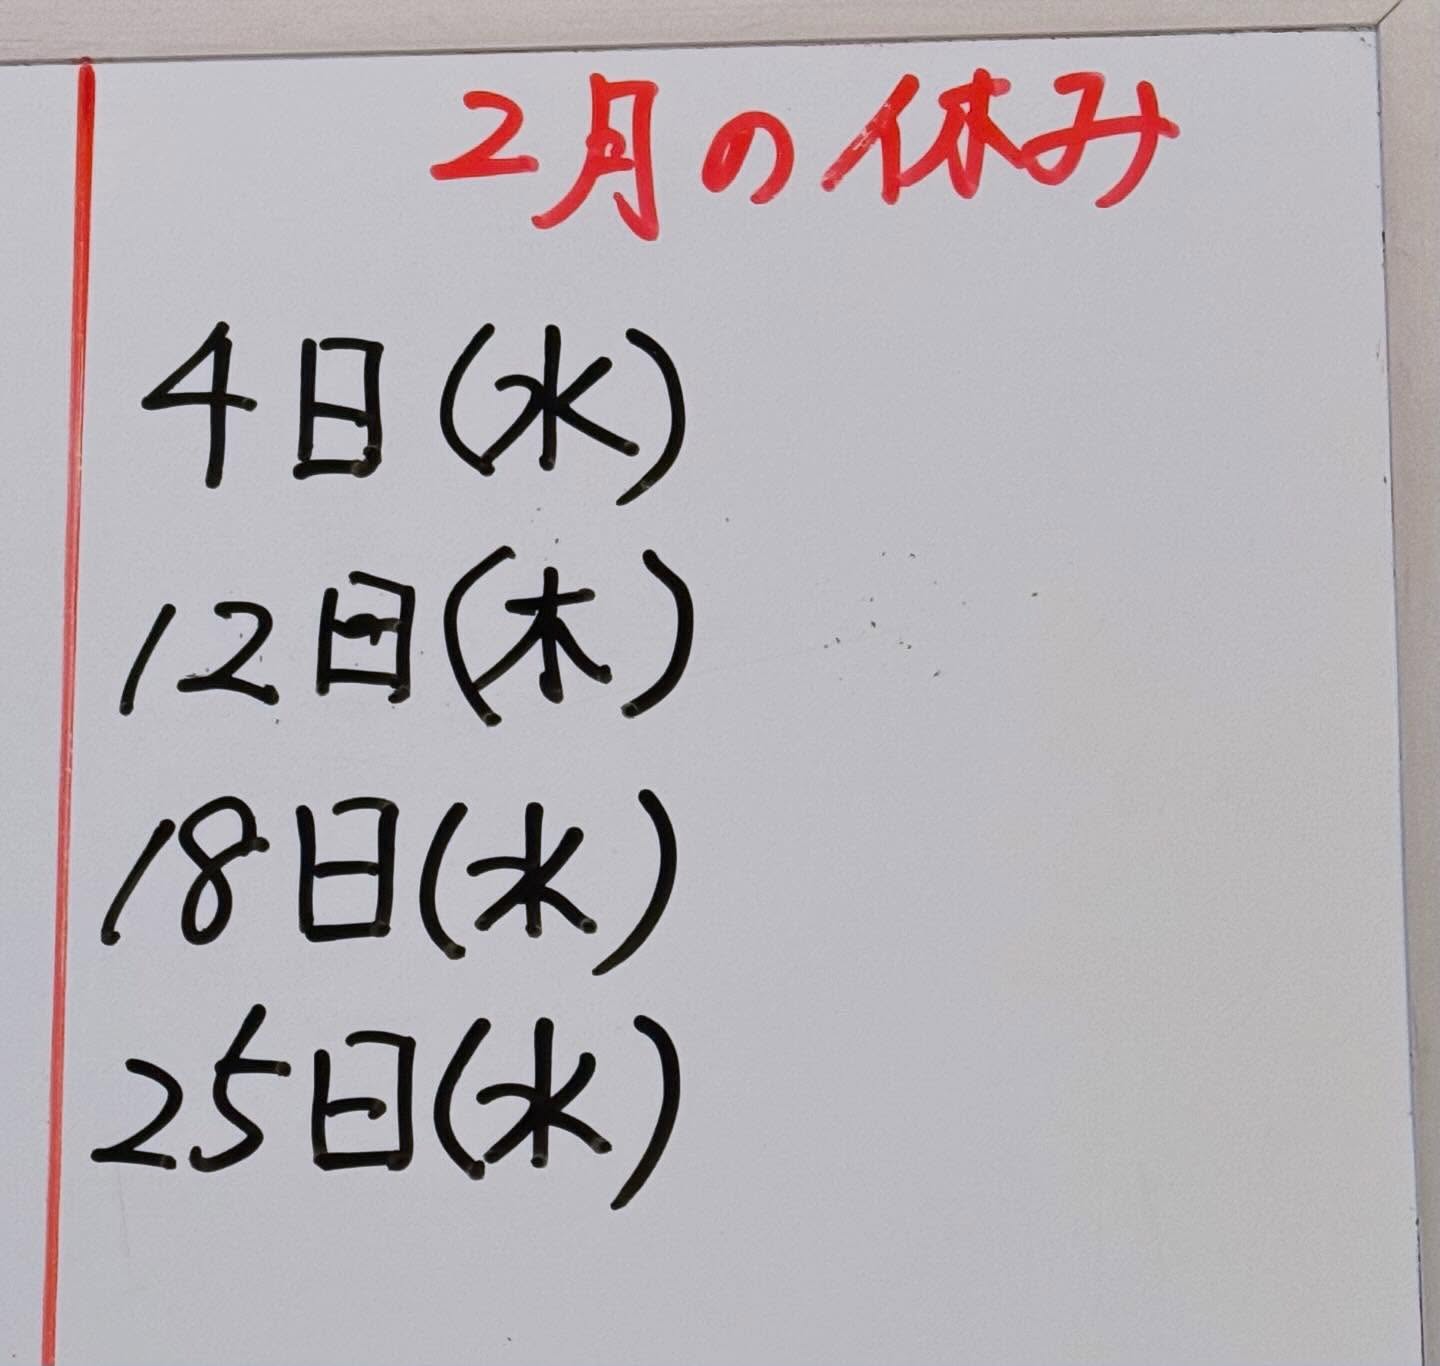 2月の休み
4日(水)
12日(木)
18日(水)
25日(水)